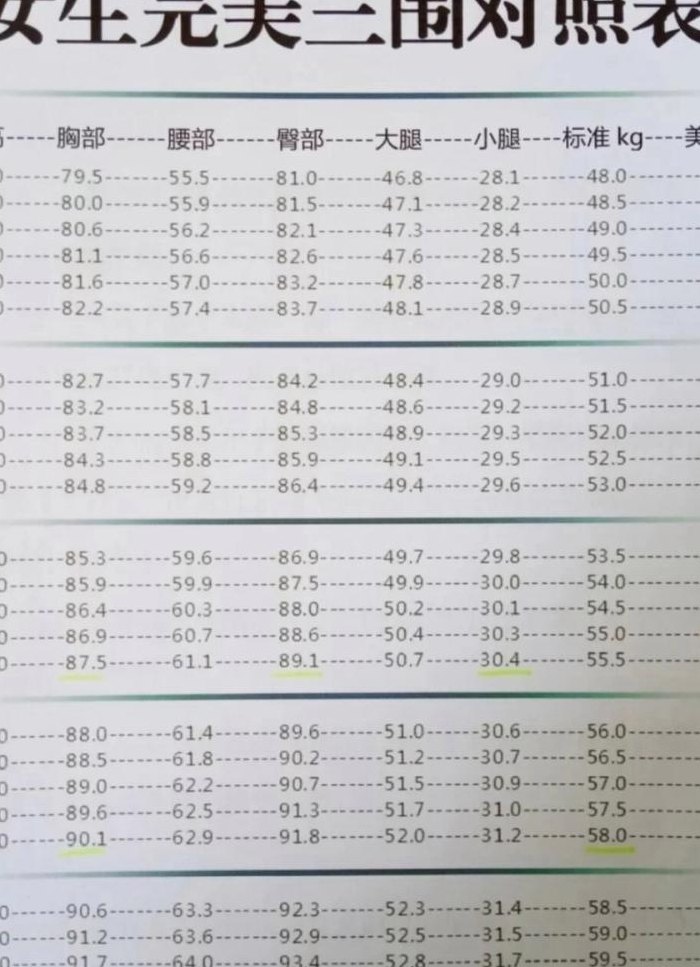 女生完美三围对照表
胸部------腰部------臀部-----大腿-----小腿----标准 kg----美
0------79.5-------55.5-------81.0-------46.8------28.1-------48.0-------
0------80.0-------55.9-------81.5-------47.1------28.2-------48.5-------
0------80.6-------56.2-------82.1-------47.3------28.4-------49.0-------
0------81.1-------56.6-------82.6-------47.6------28.5-------49.5-------
0------81.6-------57.0-------83.2-------47.8------28.7-------50.0-------
0------82.2-------57.4-------83.7-------48.1------28.9-------50.5-------
0------82.7-------57.7-------84.2-------48.4------29.0-------51.0-------
0------83.2-------58.1-------84.8-------48.6------29.2-------51.5-------
0------83.7-------58.5-------85.3-------48.9------29.3-------52.0-------
0------84.3-------58.8-------85.9-------49.1------29.5-------52.5-------
0------84.8-------59.2-------86.4-------49.4------29.6-------53.0-------
0------85.3-------59.6-------86.9-------49.7------29.8-------53.5-------
0------85.9-------59.9-------87.5-------49.9------30.0-------54.0-------
0------86.4-------60.3-------88.0-------50.2------30.1-------54.5-------
0------86.9-------60.7-------88.6-------50.4------30.3-------55.0-------
0------87.5-------61.1-------89.1-------50.7------30.4-------55.5-------
0------88.0-------61.4-------89.6-------51.0------30.6-------56.0-------
0------88.5-------61.8-------90.2-------51.2------30.7-------56.5-------
0------89.0-------62.2-------90.7-------51.5------30.9-------57.0-------
0------89.6-------62.5-------91.3-------51.7------31.0-------57.5-------
0------90.1-------62.9-------91.8-------52.0------31.2-------58.0-------
0------90.6-------63.3-------92.3-------52.3------31.4-------58.5-------
0------91.2-------63.6-------92.9-------52.5------31.5-------59.0-------
0------91.7-------64.0-------93.4-------52.8------31.7-------59.5-------